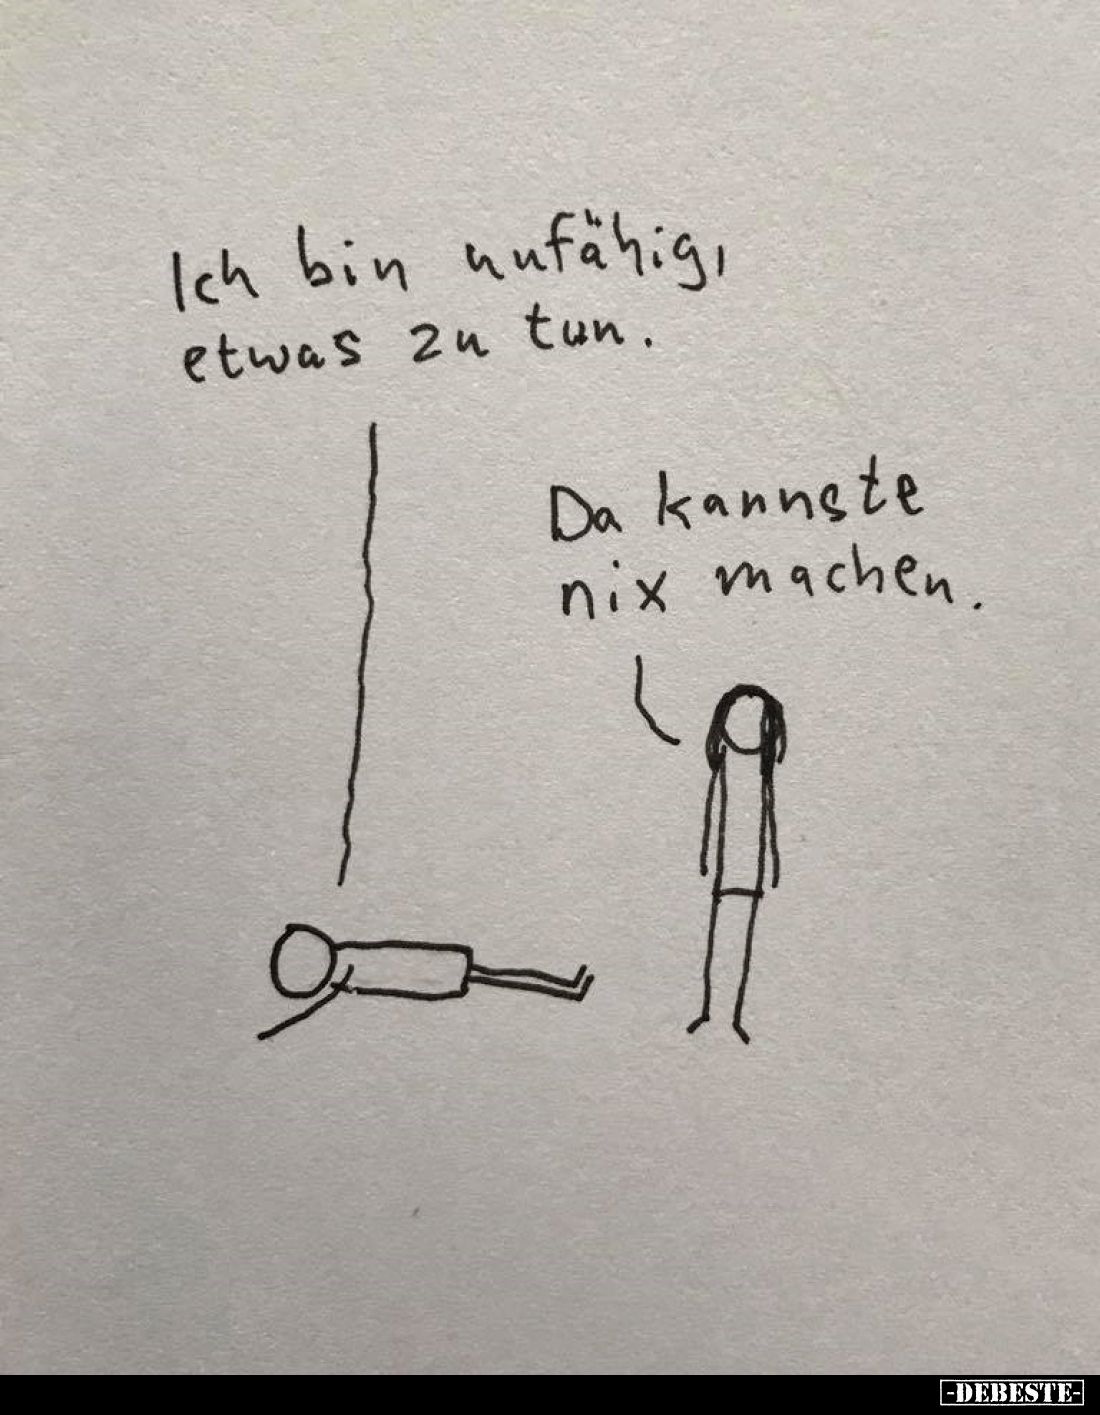 Ich bin unfähig,
etwas zu tun.
Da kannste
nix machen.
-DEBESTE-